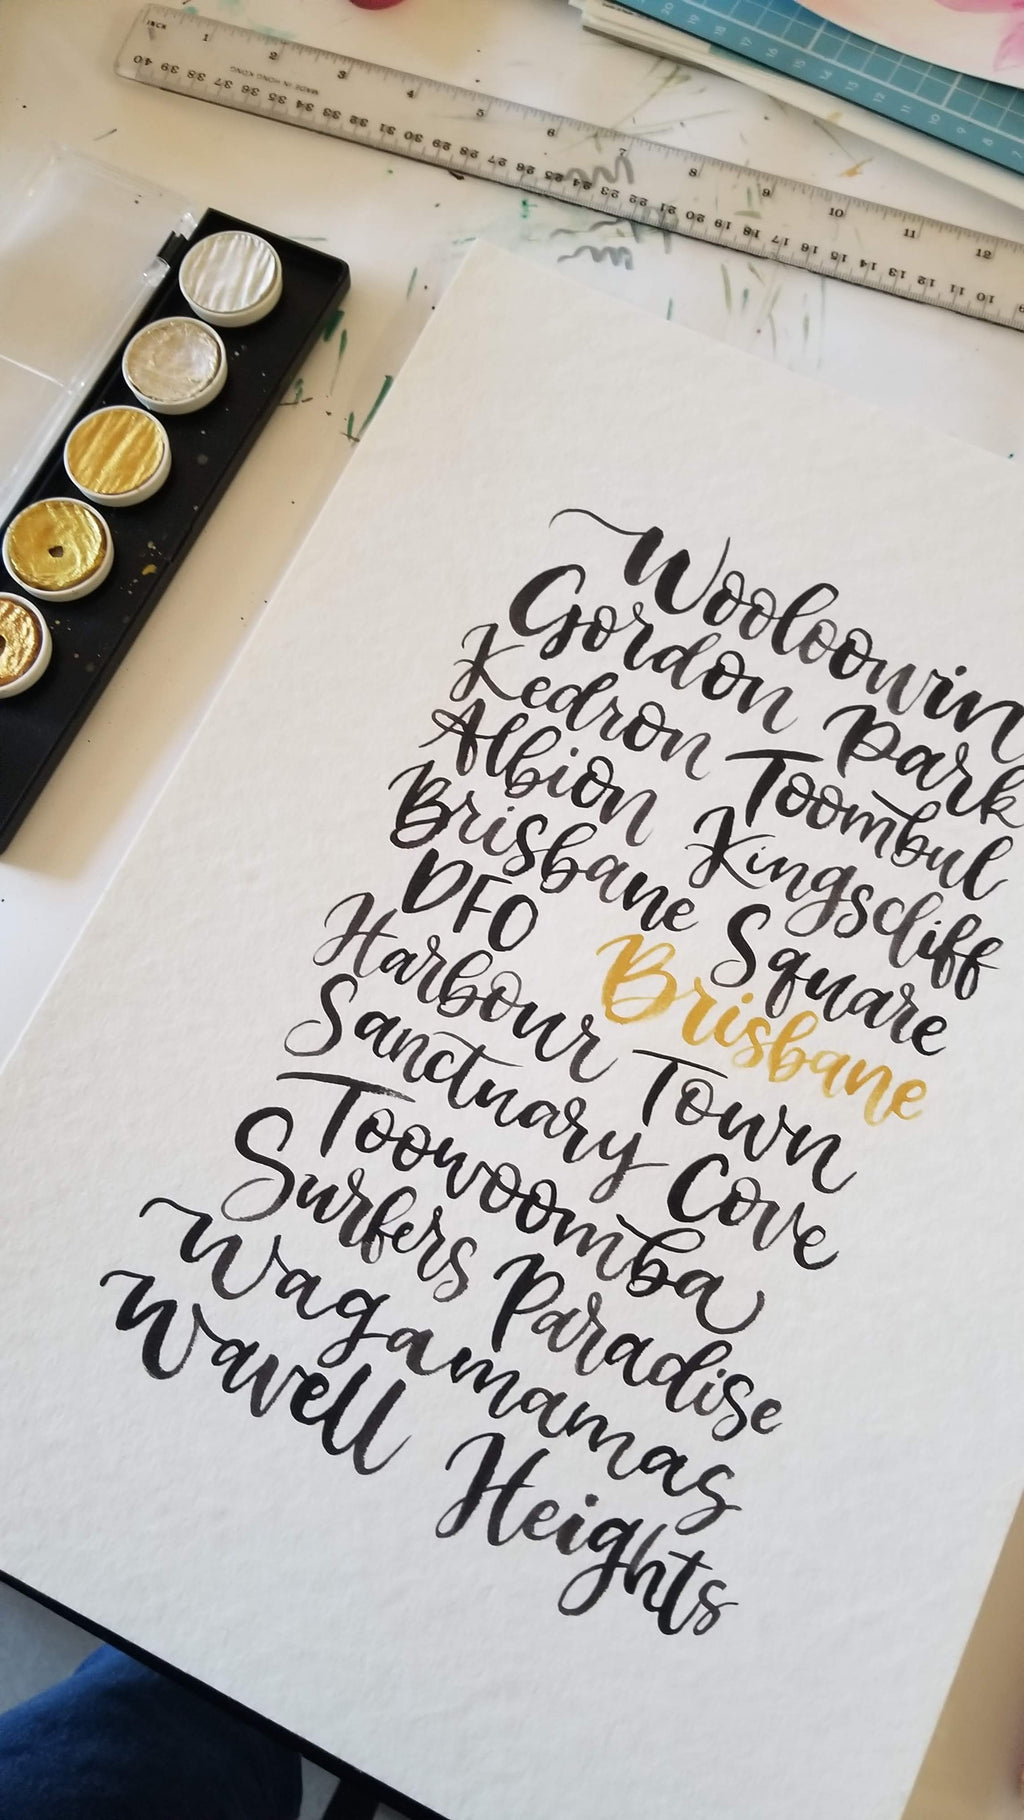 INCH 1 2 3 4 5 6 7 8 9 10 11 12
MADE IN HONG KONG
40 39 38 37 36 35 34 33 32 31 30 29 28 27 26 25 24 23 22 21 20 19 18 17 16 15 14 13 12 11 10 9
Wooloowin
Gordon Park
Kedron Toombul
Albion Kingscliff
Brisbane Square
DFO Brisbane
Harbour Town
Sanctuary Cove
Toowoomba
Surfers Paradise
Wagamamas
Wavell Heights